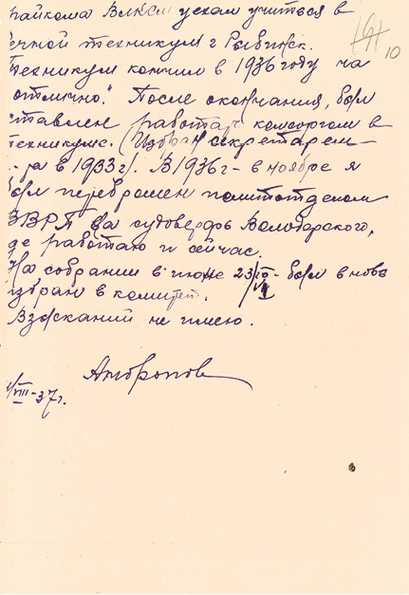 райкома ВЛКСМ уехал учиться в
речной техникум г Рыбинск.
Техникум кончил в 1936 году на
"отлично". После окончания, был
оставлен работать комсоргом в
техникуме. (Избран секретарем
ра в 1933г). В 1936г - в ноябре я
был переброшен политотделом
ВВРП на судоверфь Володарского,
где работаю и сейчас.
На собрании в июне 23/ был вновь
избран в комитет.
Взысканий не имею.
Антропов
/VIII-37г.
10